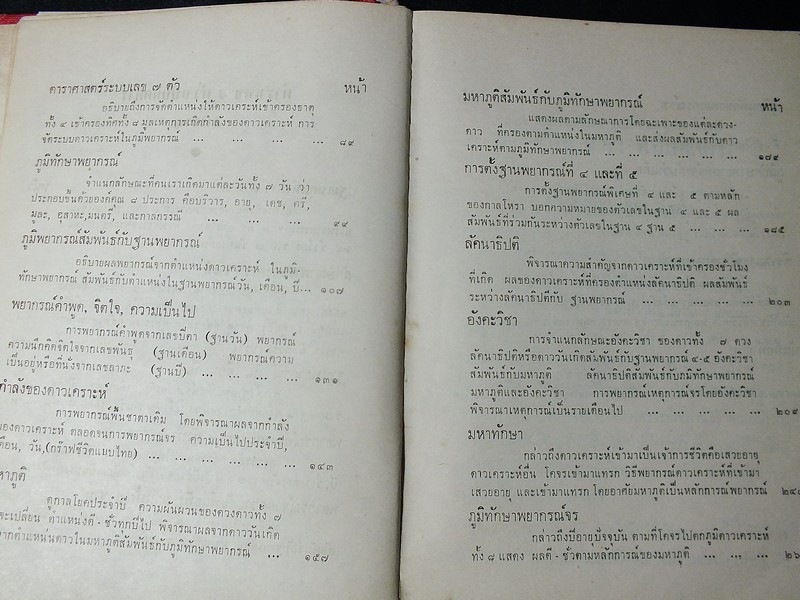 ดาราศาสตร์ระบบเลข ๗ ตัว หน้า
อธิบายถึงการจัดตำแหน่งให้ดาวเคราะห์เข้าครองธาตุ
ทั้ง ๔ เข้าครองทิศทั้ง ๘ มูลเหตุการเกิดกำลังของดาวเคราะห์ การ
จัดระบบดาวเคราะห์ในภูมิพยากรณ์ ... ... ... ... ๘๙
ภูมิทักษาพยากรณ์
จำแนกลักษณะที่คนเราเกิดมาแต่ละวันทั้ง ๗ วัน ว่า
ประกอบขึ้นด้วยองค์คุณ ๘ ประการ คือบริวาร, อายุ, เดช, ศรี,
มูละ, อุสาหะ,มนตรี, และกาลกรรณี ... ... ... ๙๙
ภูมิพยากรณ์สัมพันธ์กับฐานพยากรณ์
อธิบายผลพยากรณ์จากตำแหน่งดาวเคราะห์ ในภูมิ-
ทักษาพยากรณ์ สัมพันธ์กับตำแหน่งในฐานพยากรณ์วัน, เดือน, ปี... ๑๐๗
พยากรณ์คำพูด, จิตใจ, ความเป็นไป
การพยากรณ์คำพูดจากเลขบิดา (ฐานวัน) พยากรณ์
ความนึกคิดจิตใจจากเลขพันธุ (ฐานเดือน) พยากรณ์ความ
เป็นอยู่หรือที่นั่งจากเลขลาภะ (ฐานปี) ... ... ... ... ๑๓๑
กำลังของดาวเคราะห์
การพยากรณ์พื้นชาตาเดิม โดยพิจารณาผลจากกำลัง
ของดาวเคราะห์ ตลอดจนการพยากรณ์จร ความเป็นไปประจำปี,
เดือน, วัน,(กร๊าฟชีวิตแบบไทย) ... ... ... ... ... ๑๔๓
หาภูติ
ดูกาลโยคประจำปี ความผันผวนของดวงดาวทั้ง ๗
จะเปลี่ยน ตำแหน่งดี - ชั่วทุกปีไป พิจารณาผลจากดาววันเกิด
จากตำแหน่นดาวในมหาภูติสัมพันธ์กับภูมิทักษาพยากรณ์ ... ... ๑๕๗
มหาภูติสัมพันธ์กับภูมิทักษาพยากรณ์ หน้า
แสดงผลตามลักษณาการโดยฉะเพาะของแต่ละดวง-
ดาว ที่ครองตามตำแหน่งในมหาภูติ และส่งผลสัมพันธ์กับดาว
เคราะห์ตามภูมิทักษาพยากรณ์ ... ... ... ... ... ... ๑๗๙
การตั้งฐานพยากรณ์ที่ ๔ และที่ ๕
การตั้งฐานพยากรณ์พิเศษที่ ๔ และ ๕ ตามหลัก
ของกาลโหรา บอกความหมายของตัวเลขในฐาน ๔ และ ๕ ผล
สัมพันธ์ที่ร่วมกันระหว่างตัวเลขในฐาน ๔ ฐาน ๕ ... ... ... ๑๘๕
ลัคนาธิปติ
พิจารณาความสำคัญจากดาวเคราะห์ที่เข้าครองชั่วโมง
ที่เกิด ผลของดาวเคราะห์ที่ครองตำแหน่งลัคนาธิปติ ผลสัมพันธ์
ระหว่างลัคนาธิปติกับ ฐานพยากรณ์ ... ... ... ... ... ๒๐๓
อังคะวิชา
การจำแนกลักษณะอังคะวิชา ของดาวทั้ง ๗ ดวง
ลัคนาธิปติหรือดาววันเกิดสัมพันธ์กับฐานพยากรณ์ ๔-๕ อังคะวิชา
สัมพันธ์กับมหาภูติ ลัคนาธิปติสัมพันธ์กับภูมิทักษาพยากรณ์
มหาภูติและอังคะวิชา การพยากรณ์เหตุการณ์จรโดยอังคะวิชา
พิจารณาเหตุการณ์เป็นรายเดือนไป ... ... ... ... ... ๒๐๙
มหาทักษา
กล่าวถึงดาวเคราะห์เข้ามาเป็นเจ้าการชีวิตคือเสวยอายุ
ดาวเคราะห์อื่น โคจรเข้ามาแทรก วิธีพยากรณ์ดาวเคราะห์ที่เข้ามา
เสวยอายุ และเข้ามาแทรก โดยอาศัยมหาภูติเป็นหลักการณ์พยากรณ์
ภูมิทักษาพยากรณ์จร
กล่าวถึงปีอายุปัจจุบัน ตามที่โคจรไปตกภูมิดาวเคราะห์
ทั้ง ๘ แสดง ผลดี - ชั่วตามหลักการณ์ของมหาภูติ ... ... ...